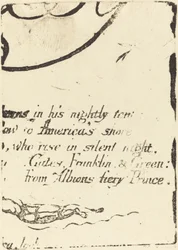 burns in his nightly ten
low to Americas shore
who rise in silent night,
Gates, Franklin & Green;
from Albions fiery Prince.